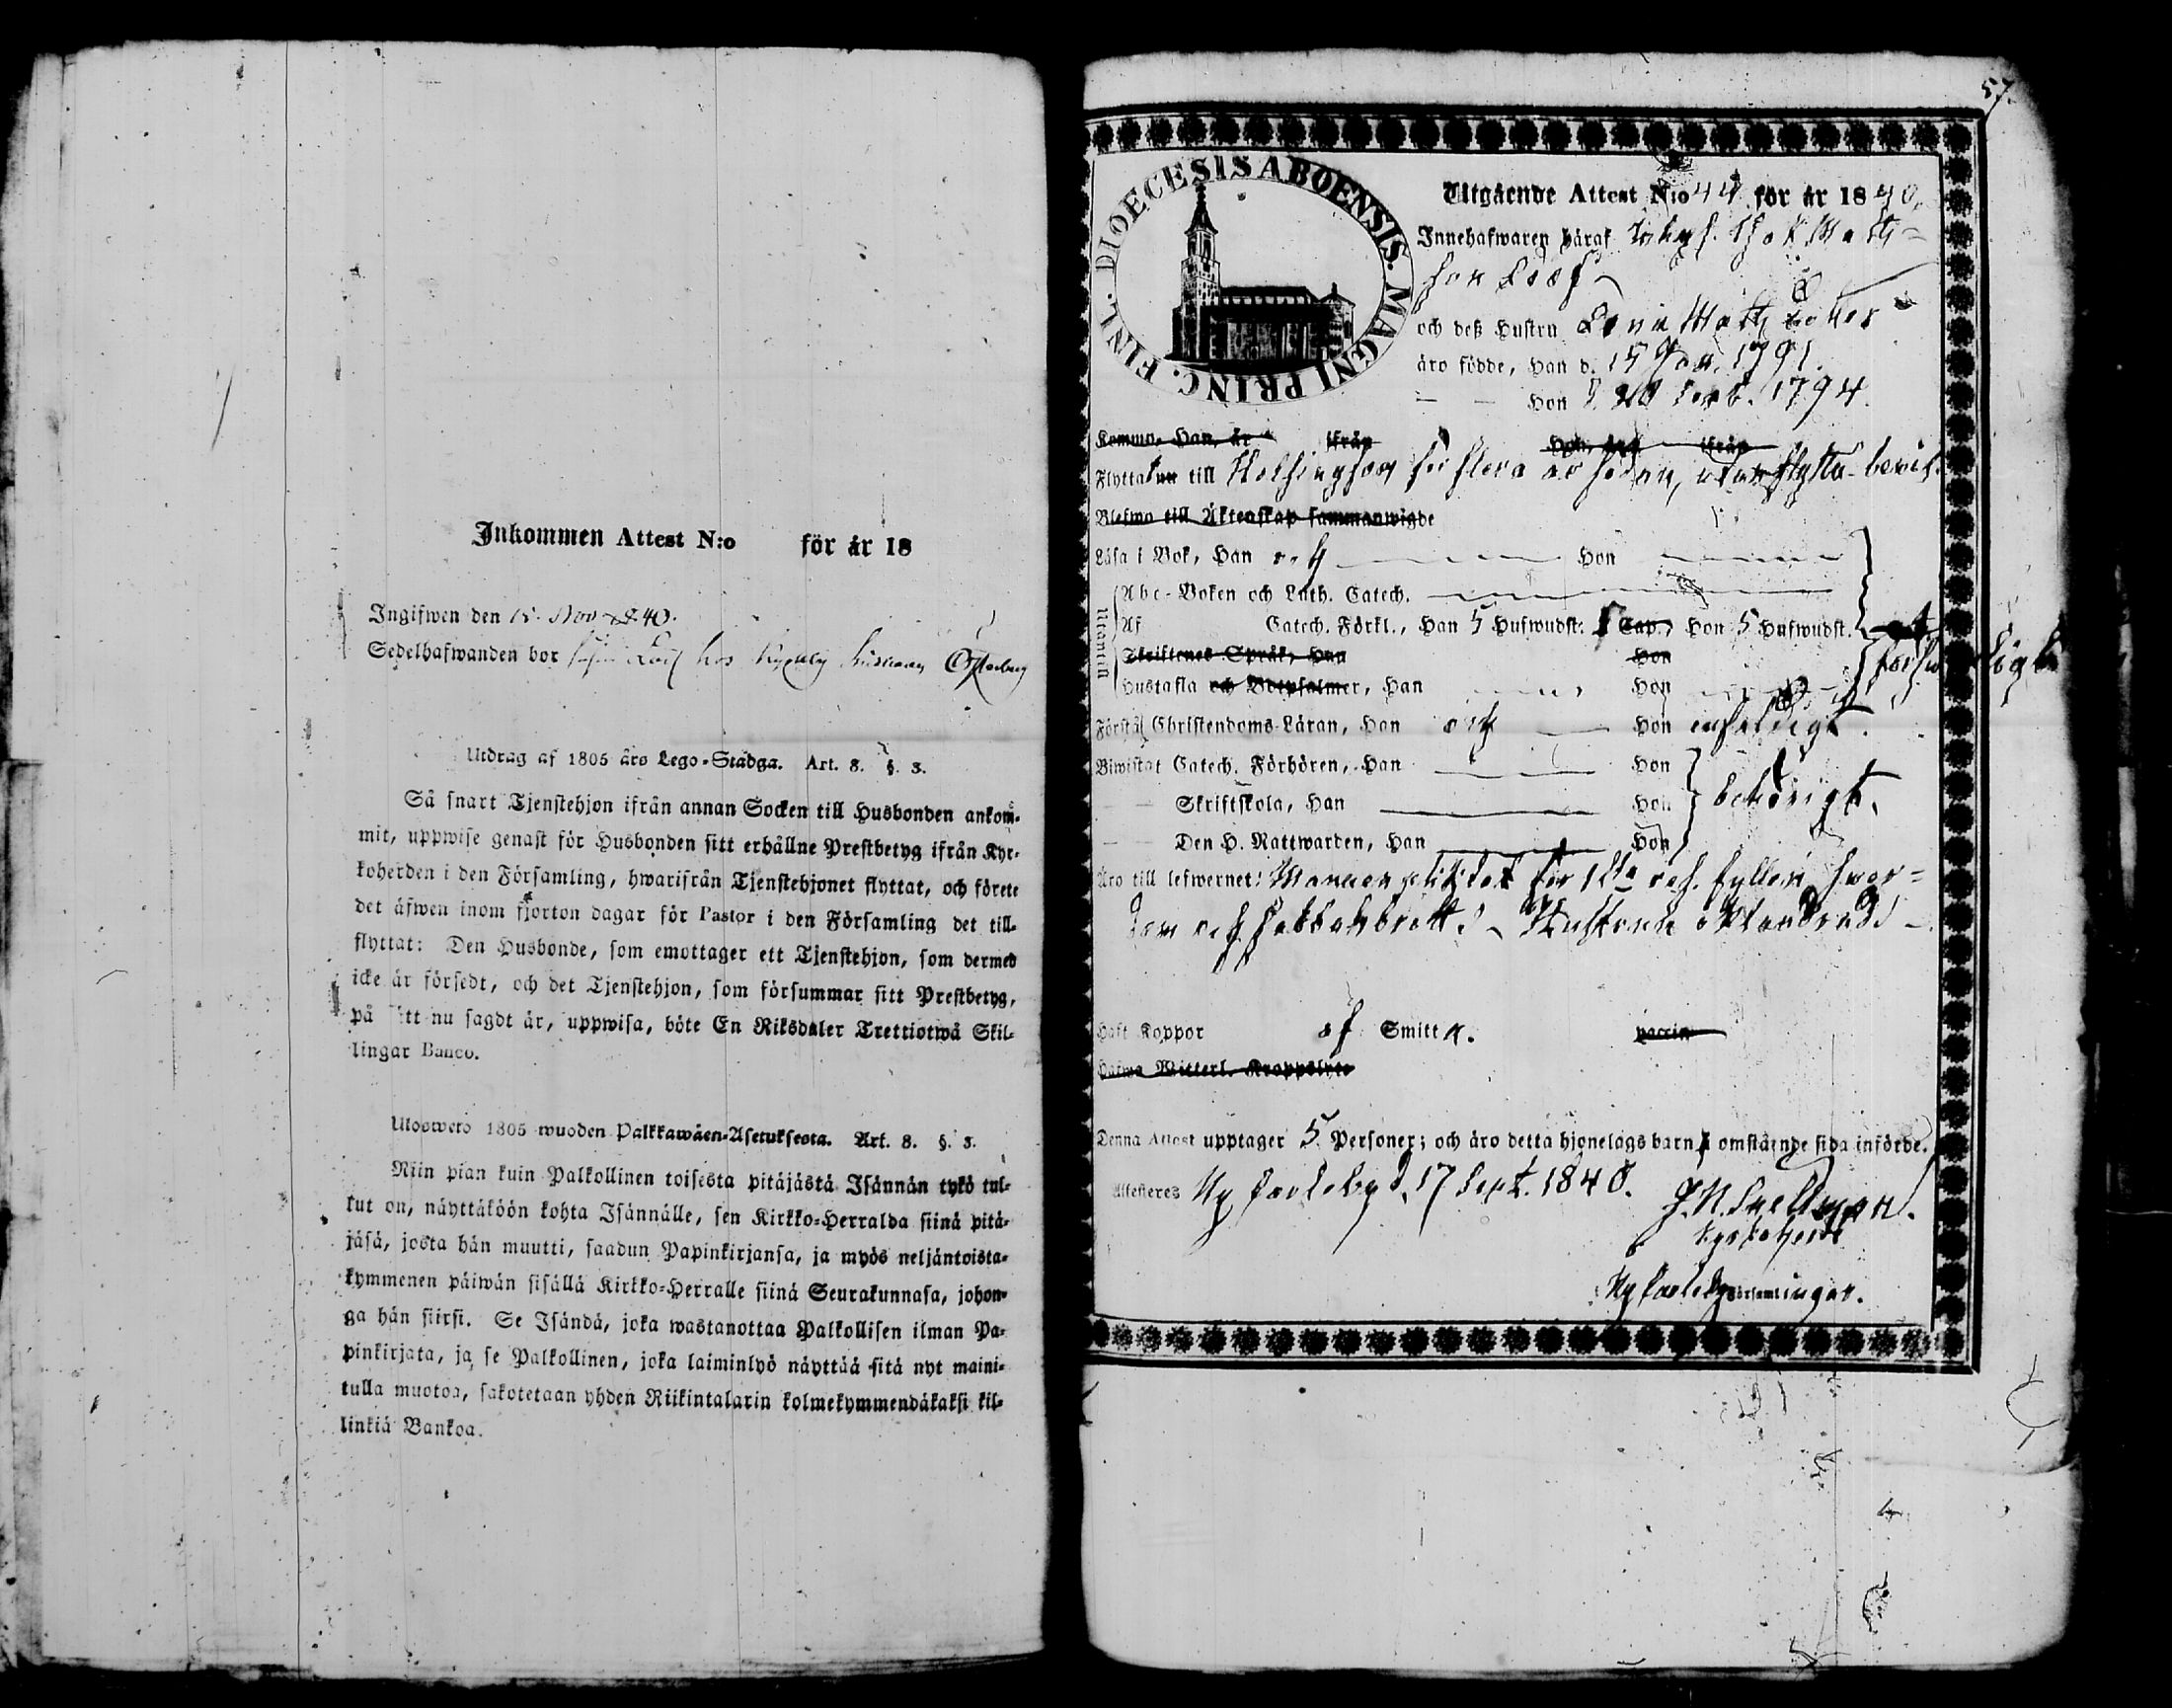 Inkommen Attest N:o för år 18
Ingifwen den 15. Nov 1840.
Sedelhafwanden bor hos Österberg
Utdrag af 1805 års Lego-Stadga. Art. 8. §. 3.
Så snart Tjenstehjon ifrån annan Socken till Husbonden ankom-
mit, uppwise genast för Husbonden sitt erhållne Prestbetyg ifrån Kyr-
koherden i den Församling, hwarifrån Tjenstehjonet flyttat, och förete
det äfwen inom fjorton dagar för Pastor i den Församling det till-
flyttat: Den Husbonde, som emottager ett Tjenstehjon, som dermed
icke är försedt, och det Tjenstehjon, som försummar sitt Prestbetyg,
på sätt nu sagdt är, uppwisa, böte En Riksdaler Trettiotwå Skil-
lingar Banco.
Ulosweto 1805 wuoden Palkkawäen-Asetuksesta. Art. 8. §. 3.
Niin pian kuin Palkollinen toisesta pitäjästä Isännän tykö tul-
lut on, näyttäköön kohta Isännälle, sen Kirkko-Herralda siinä pitä-
jäsä, josta hän muutti, saadun Papinkirjansa, ja myös neljäntoista-
kymmenen päiwän sisällä Kirkko-Herralle siinä Seurakunnasa, johon-
ga hän siirsi. Se Isändä, joka wastanottaa Palkollisen ilman Pa-
pinkirjata, ja se Palkollinen, joka laiminlyö näyttää sitä nyt maini-
tulla muotoa, sakotetaan yhden Riikintalarin kolmekymmendäkaksi kil-
linkiä Bankoa.
57.
DIOECESIS ABOENSIS. MAGNI PRINC. FINL.
Utgående Attest N:o 44 för år 1840.
Innehafwaren häraf Isak Matts-
son Lööf
och deß Hustru Lena Matts dotter
äro födde, Han d. 15 Jan. 1791.
Hon d. 20 Sept. 1794.
Komne, Han, år ifrån Hon, år ifrån
Flytta till Helsingfors för flera år sedan, utan flytta-bevis.
Blefwo till Äktenskap sammanwigde
Läsa i Bok, Han och Hon
Abc-Boken och Luth. Catech.
Utantill
Af Catech. Förkl., Han 5 Hufwudst. Cap., Hon 5 Hufwudst.
Skriftenes Språk, Han Hon
Hustafla och Botpsalmer, Han Hon
Förstå Christendoms-Läran, Han och Hon enfaldigt.
Biwistat Catech. Förhören, Han Hon
Skriftskola, Han Hon behörigt.
Den H. Nattwarden, Han Hon
Äro till lefwernet: Mannen pliktat för 1sta res. fylleri, svor-
dom och sabbatsbrott. Hustrun oklandrad.
Haft Koppor af Smitta. vaccin
Hafwa Witterl. Kroppslyte
Denna Attest upptager 5 Personer; och äro detta hjonelags barn å omstående sida införde.
Attesteres Ny Carleby d. 17 Sept. 1840.
J. N. Snellman.
Kyrkoherde
Ny Carleby Församlingar.